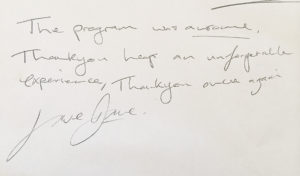 The program was awesome,
Thankyou for an unforgetable
experience, Thankyou once again
Love Jane.